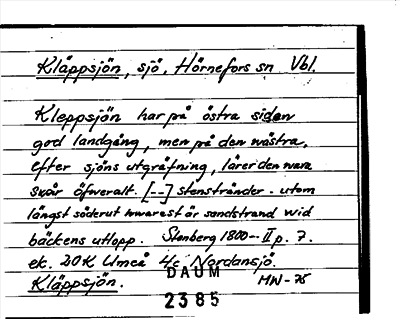 Kläppsjön, sjö, Hörnefors sn Vbl.
Kleppsjön har på östra sidan
god landgång, men på den wästra,
efter sjöns utgräfning, lärer den wara
swår öfweralt. [--] stenstränder - utom
längst söderut hwarest är sandstrand wid
bäckens utlopp. Stenberg 1800-- II p. 7.
ek. 20K Umeå 4c Nordansjö.
DAUM
Kläppsjön. MW-75
2385